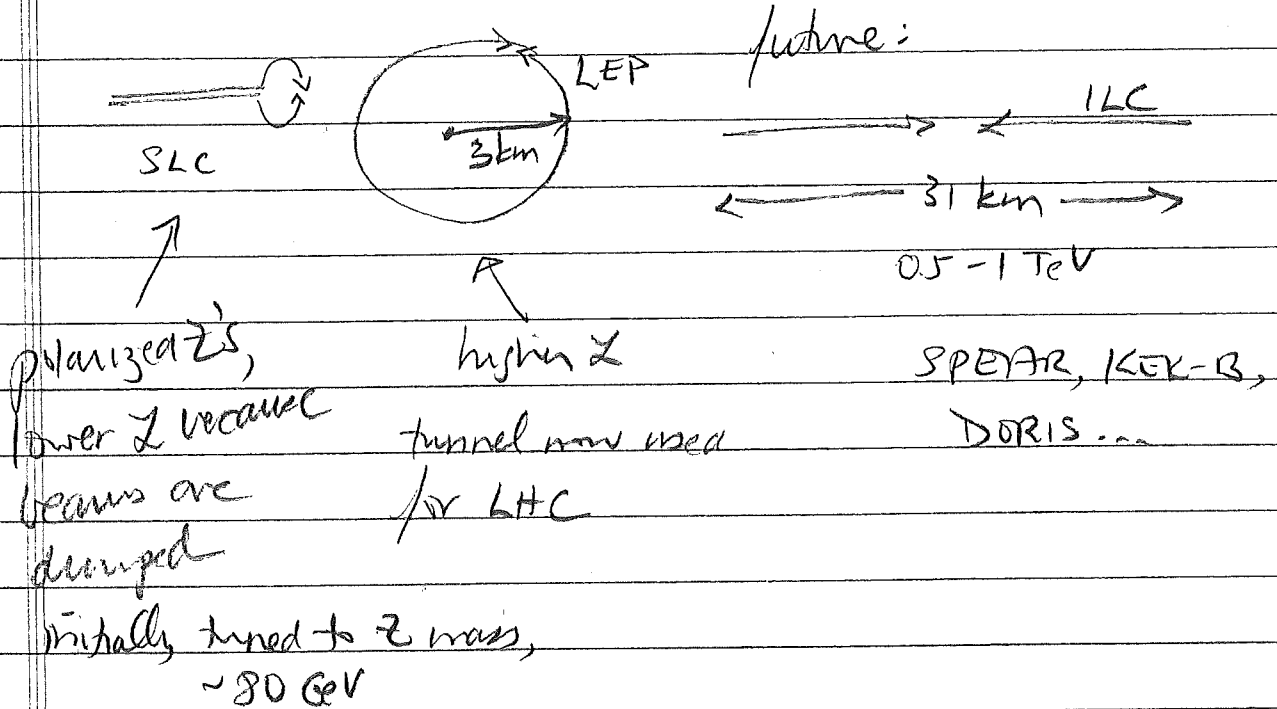 future:
LEP
ILC
3km
SLC
31 km
0.5-1 TeV
polarized Z's,
lower L because
beams are
dumped
higher L
tunnel now used
for LHC
SPEAR, KEK-B,
DORIS...
initially tuned to Z mass,
~80 GeV